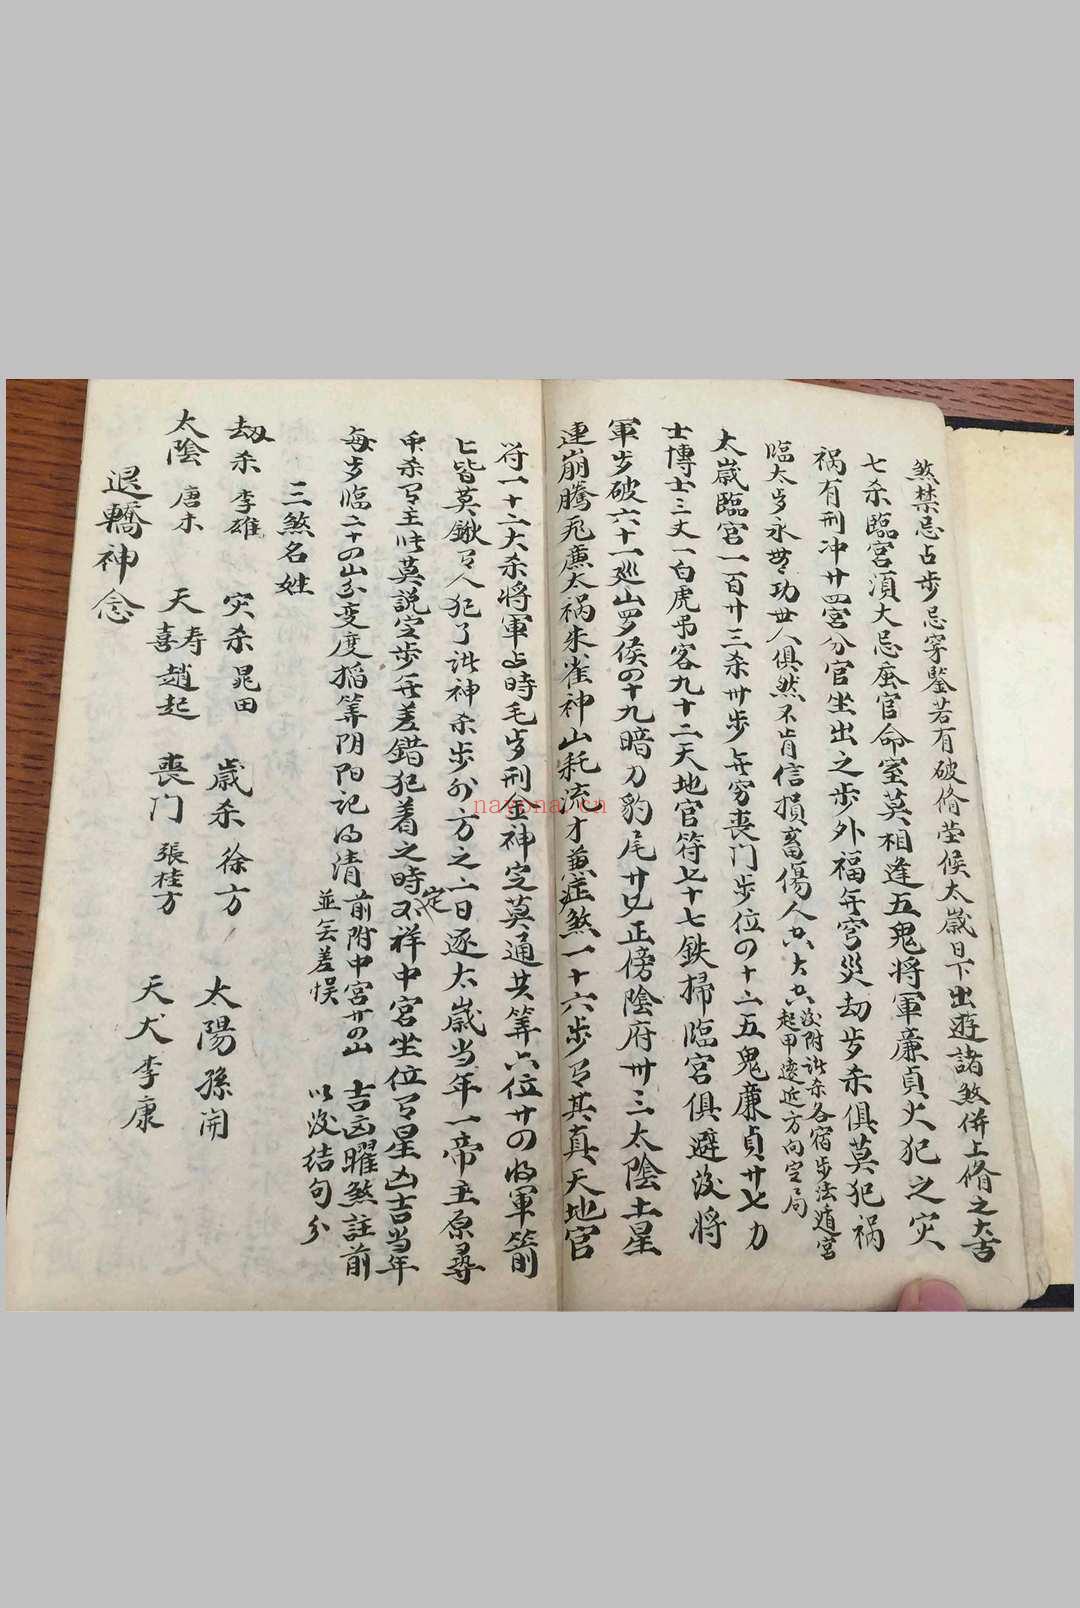 煞禁忌占步忌穿鑿若有破脩茔候太歲日下出遊諸煞併上脩之大吉
七杀臨宮須大忌蚕官命室莫相逢五鬼将軍亷貞火犯之灾
祸有刑冲廿四宮分官坐出之步外福無穹災劫步杀俱莫犯祸
臨太歩永無功世人俱然不肯信損畜傷人
後附此杀各宿步法遁宮
起甲遠近方向定局
太歲臨宮一百廿三杀卅步無穷喪门步位四十二五鬼亷貞廿七力
士博士三丈一白虎吊客九十二天地官符七十七鉄掃臨宮俱避後将
軍步破六十一巡山罗侯四十九暗刀豹尾廿正傍陰府卅三太陰土星
連崩騰太祸朱雀神山耗流才症煞一十六步其真天地官
符一十二大杀将軍占時毛步刑金神定莫通共筭六位廿四将軍箭
上皆莫鍬人犯了此神杀步方之一日逐太歲当年一帝主原尋
杀主此莫説定步無差錯犯着之時不祥中宮坐位星凶吉当年
定
每步臨二十四山分变度掐筭阴阳记清
前附中宮廿四山
並無差悮
吉凶曜煞註前
以後结句分
三煞名姓
劫杀 李雄 灾杀 晁田 歲杀 徐方 太陽 孫開
太陰 唐木 天寿喜 趙起 喪门 張桂方 天犬 李康
退轎神念
nayona.cn